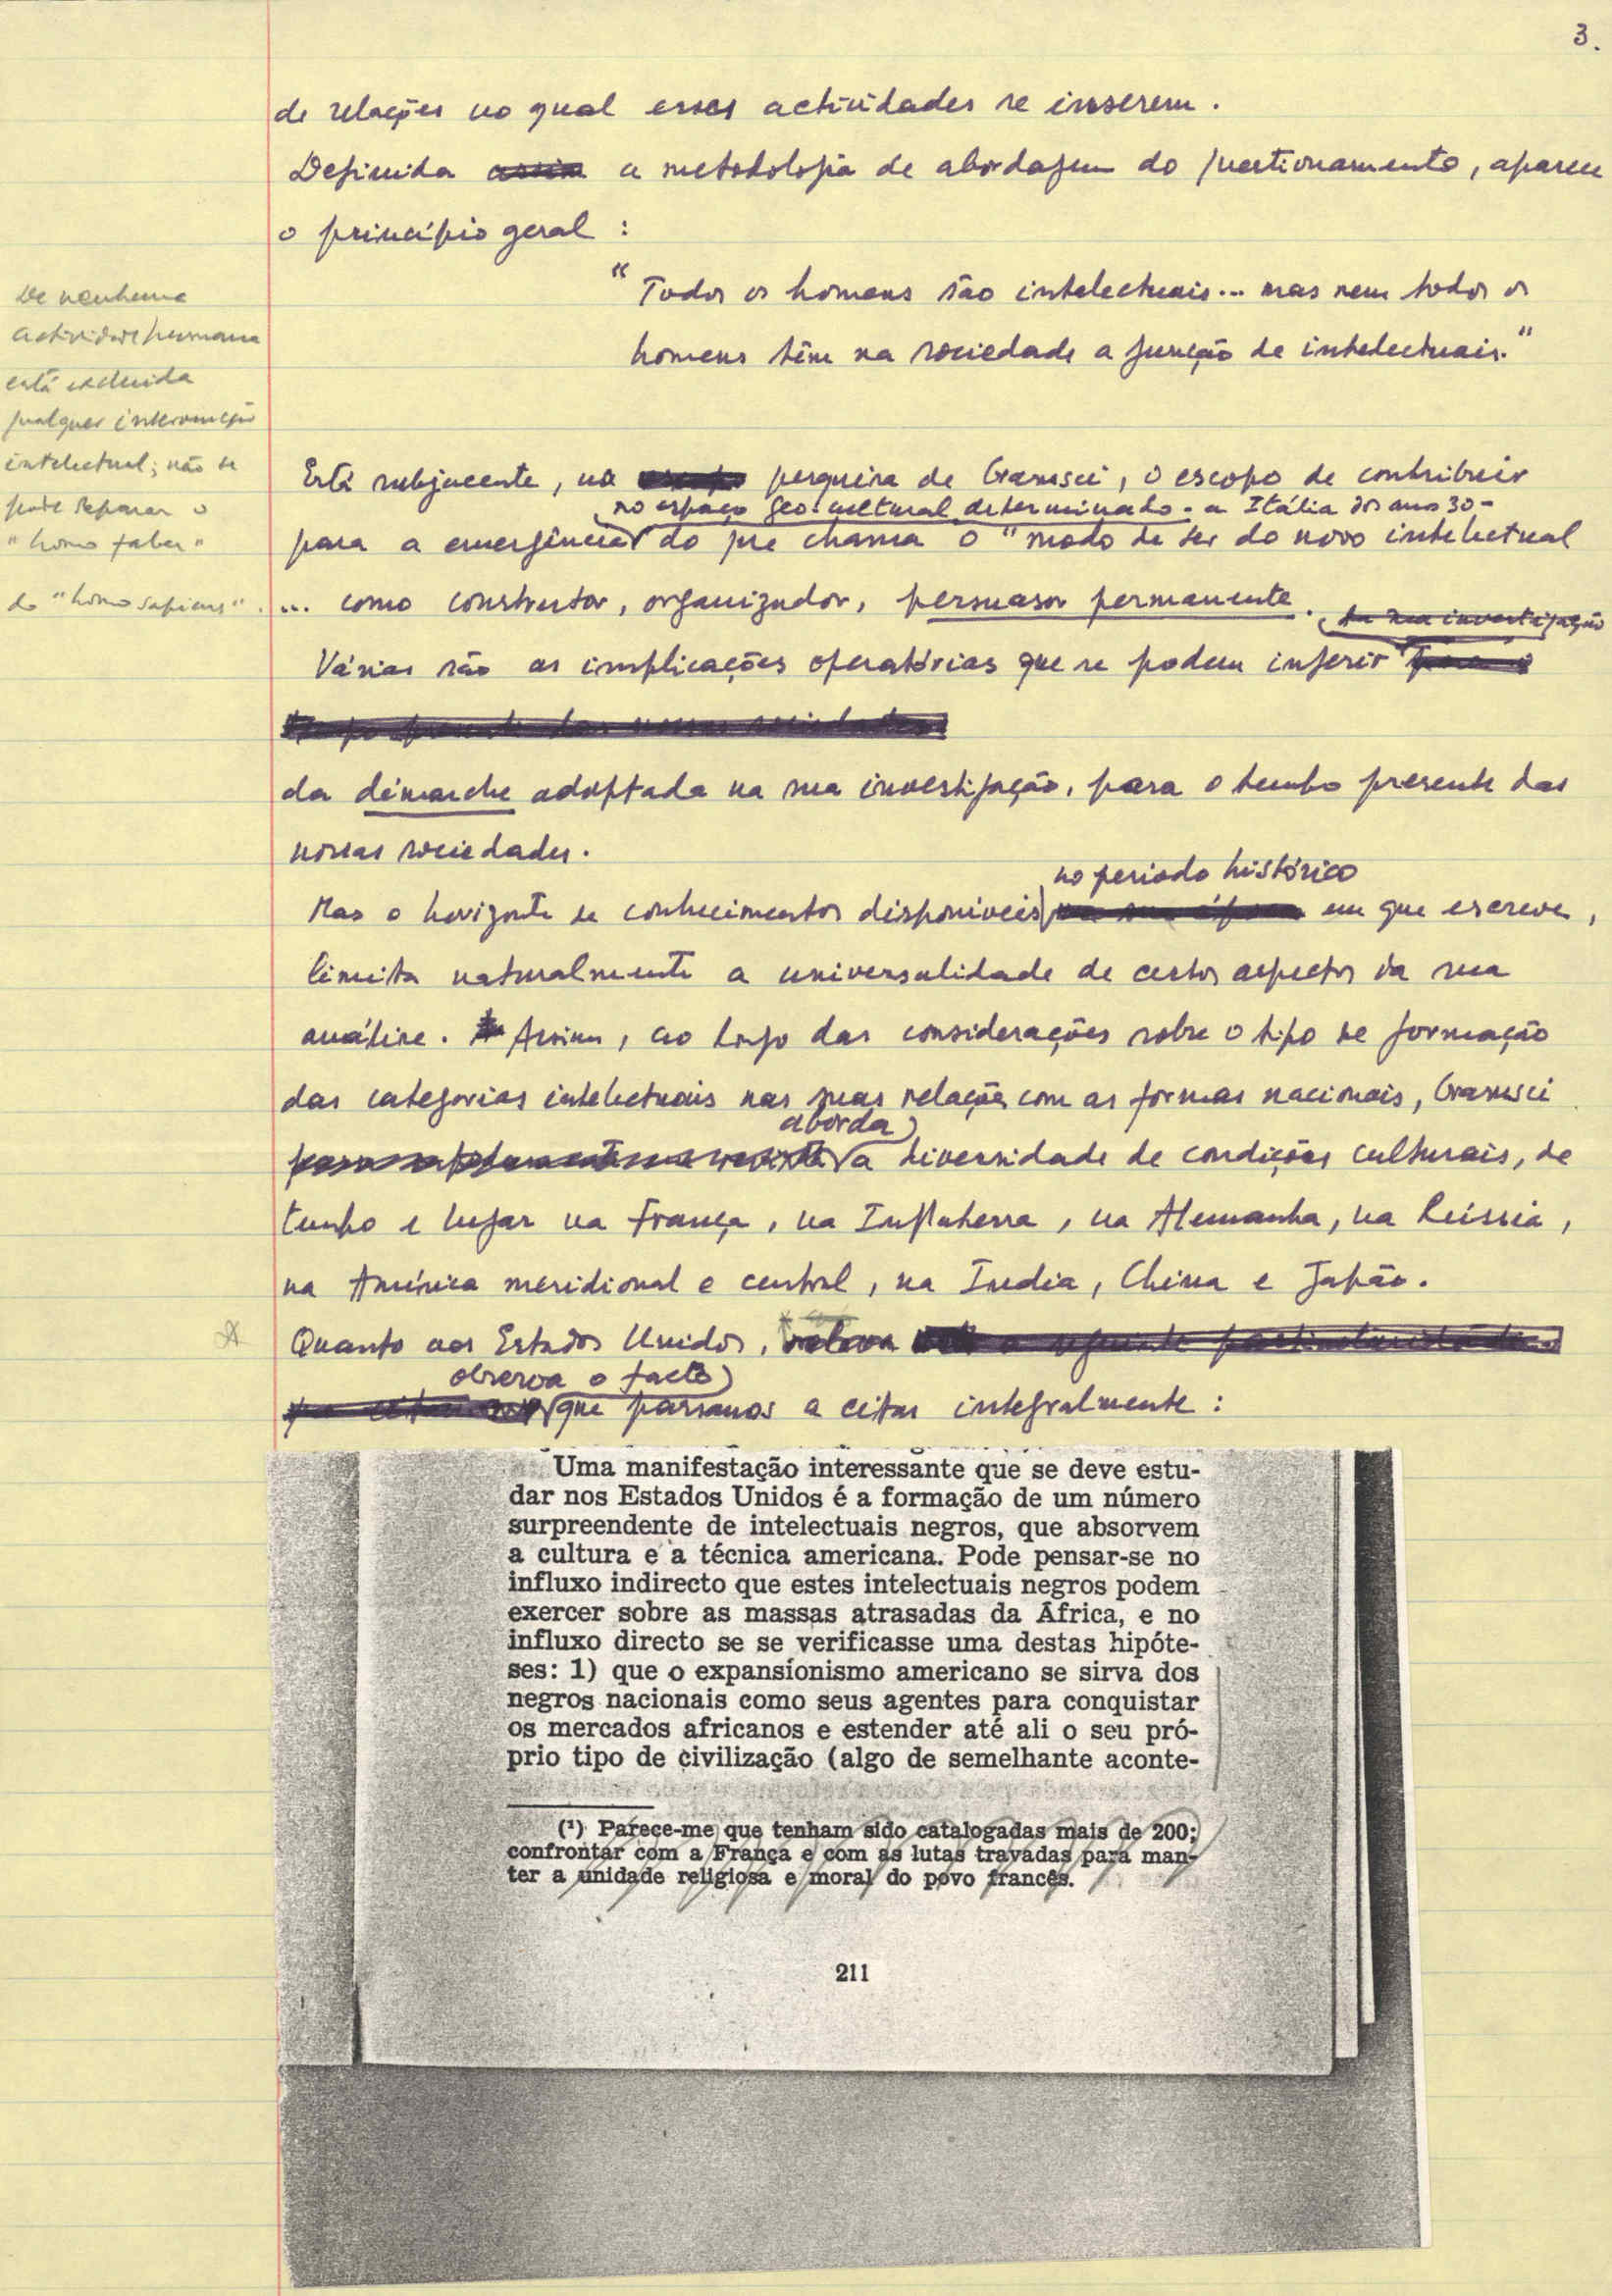 3.
de relações no qual essas actividades se inserem.
Definida assim a metodologia de abordagem do questionamento, aparece
o princípio geral :
"Todos os homens são intelectuais... mas nem todos os
homens têm na sociedade a função de intelectuais."
De nenhuma
actividade humana
está excluida
qualquer intervenção
intelectual; não se
pode separar o
"homo faber"
do "homo sapiens".
Está subjacente, na pesquisa de Gramsci, o escopo de contribuir
no espaço geo-cultural determinado - a Itália dos anos 30 -
para a emergência do que chama o "modo de ser do novo intelectual
... como construtor, organizador, persuasor permanente.
da sua investigação
Várias são as implicações operatórias que se podem inferir para o
tempo presente das nossas sociedades
da démarche adoptada na sua investigação, para o tempo presente das
nossas sociedades.
no periodo histórico
Mas o horizonte de conhecimentos disponíveis na sua época em que escreve,
limita naturalmente a universalidade de certos aspectos da sua
análise. Assim, ao longo das considerações sobre o tipo de formação
das categorias intelectuais nas suas relações com as formas nacionais, Gramsci
aborda
a diversidade de condições culturais, de
tempo e lugar na França, na Inglaterra, na Alemanha, na Rússia,
na América meridional e central, na India, China e Japão.
Quanto aos Estados Unidos, releva a seguinte particularidade
observa o facto
que passamos a citar integralmente :
Uma manifestação interessante que se deve estu-
dar nos Estados Unidos é a formação de um número
surpreendente de intelectuais negros, que absorvem
a cultura e a técnica americana. Pode pensar-se no
influxo indirecto que estes intelectuais negros podem
exercer sobre as massas atrasadas da África, e no
influxo directo se se verificasse uma destas hipóte-
ses: 1) que o expansionismo americano se sirva dos
negros nacionais como seus agentes para conquistar
os mercados africanos e estender até ali o seu pró-
prio tipo de civilização (algo de semelhante aconte-
(¹) Parece-me que tenham sido catalogadas mais de 200;
confrontar com a França e com as lutas travadas para man-
ter a unidade religiosa e moral do povo francês.
211